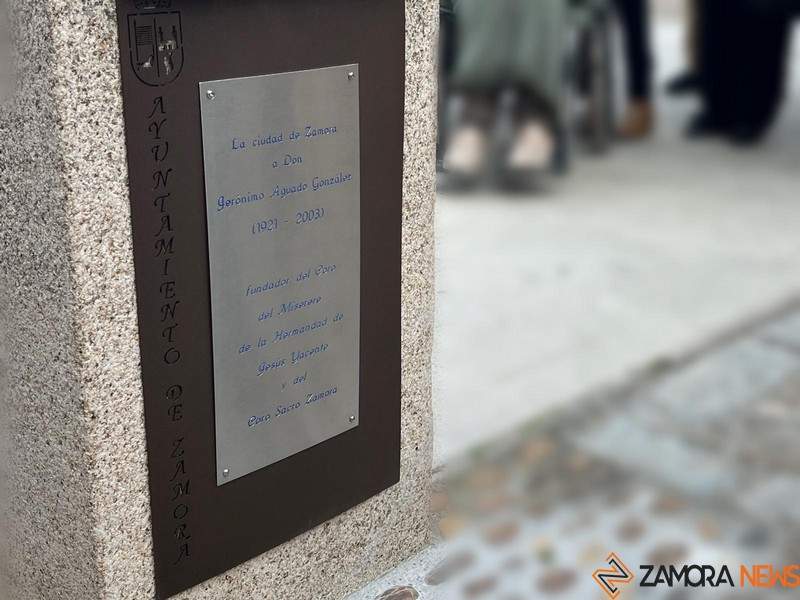 AYUNTAMIENTO DE ZAMORA
La ciudad de Zamora
a Don
Gerónimo Aguado González
(1921 - 2003)
fundador del Coro
del Miserere
de la Hermandad de
Jesús Yacente
y del
Coro Sacro Zamora
ZAMORA NEWS